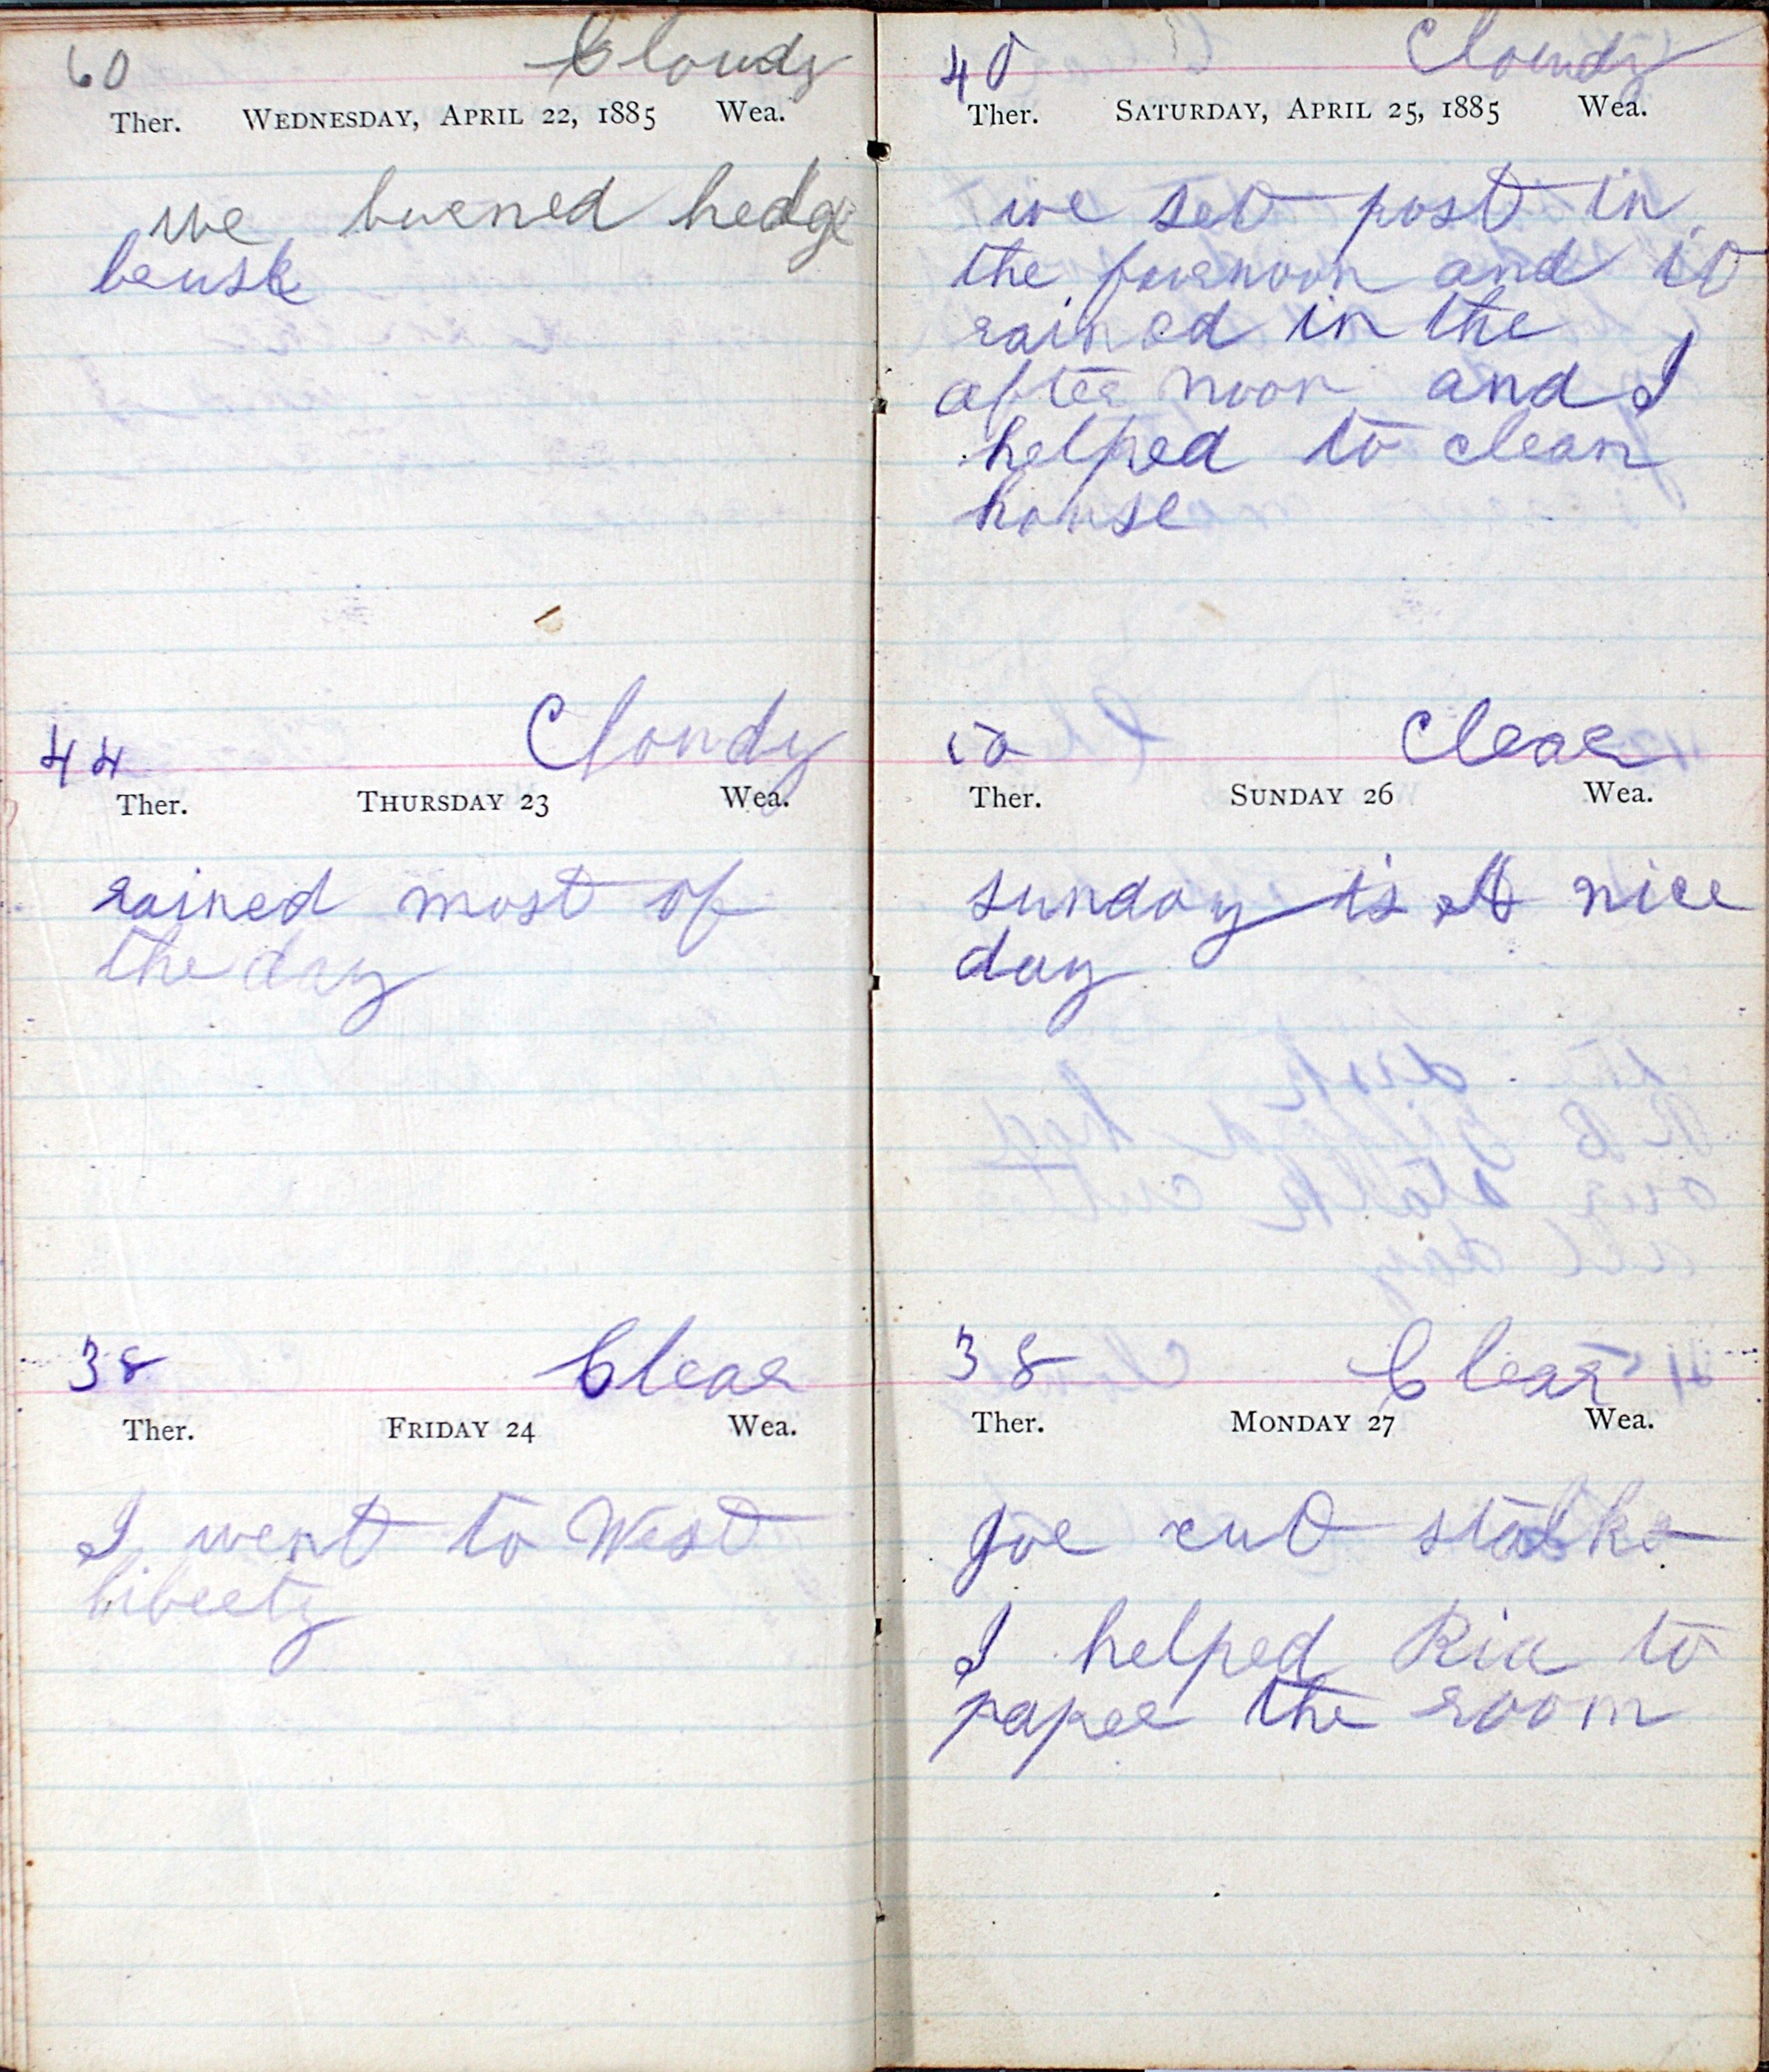 60 Cloudy
Ther. WEDNESDAY, APRIL 22, 1885 Wea.
we burned hedge
brush
44 Cloudy
Ther. THURSDAY 23 Wea.
rained most of
the day
38 Clear
Ther. FRIDAY 24 Wea.
I went to West
liberty
40 Cloudy
Ther. SATURDAY, APRIL 25, 1885 Wea.
we set post in
the forenoon and it
rained in the
after noon and I
helped to clean
house
Clear
Ther. SUNDAY 26 Wea.
sunday is A nice
day
38 Clear
Ther. MONDAY 27 Wea.
Joe cut stalks
I helped Ria to
paper the room